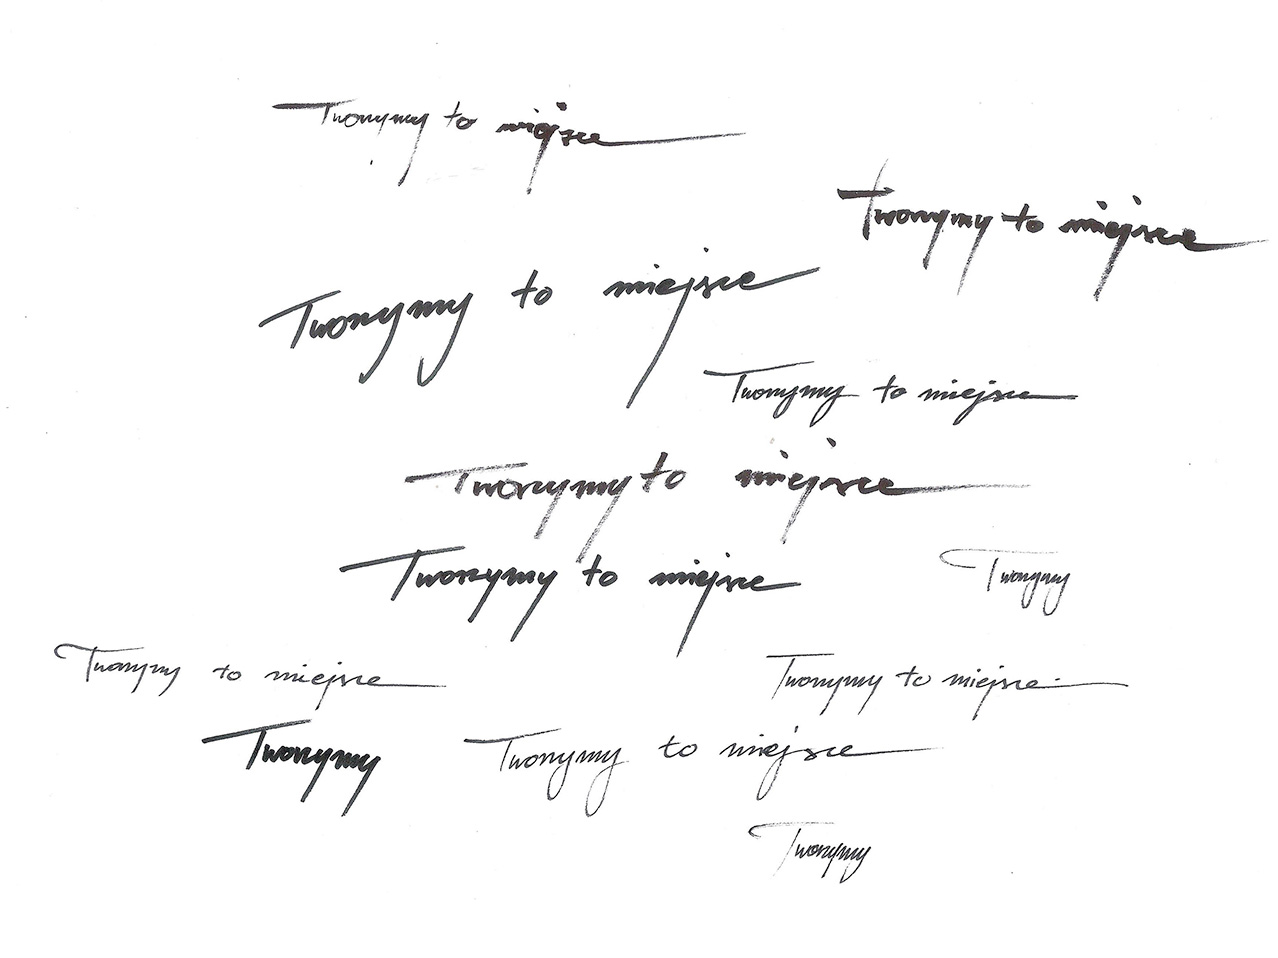 Tworzymy to miejsce
Tworzymy to miejsce
Tworzymy to miejsce
Tworzymy to miejsce
Tworzymy to miejsce
Tworzymy to miejsce
Tworzymy
Tworzymy to miejsce
Tworzymy to miejsce
Tworzymy
Tworzymy to miejsce
Tworzymy